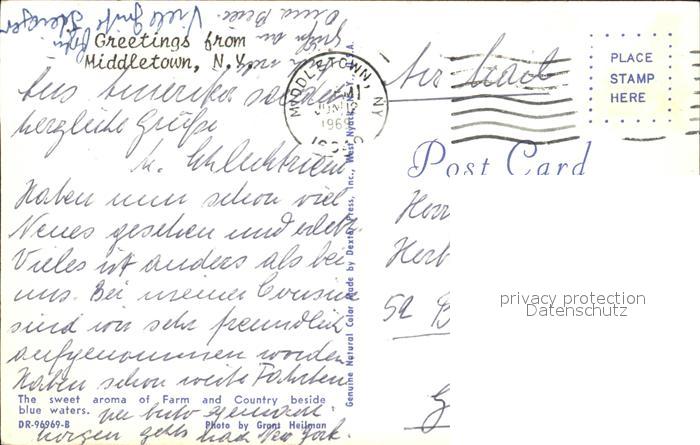 Viele Grüße
Greetings from
Middletown, N.Y.
Aus Amerika senden
herzliche Grüße
Haben nun schon viel
Neues gesehen und erlebt.
Vieles ist anders als bei
uns. Bei meiner Cousine
sind wir sehr freundlich
aufgenommen worden.
Haben schon weite Fahrten
The sweet aroma of Farm and Country beside
blue waters.
DR-96969-B
Photo by Grant Heilman
morgen gehts nach New York.
MIDDLETOWN, NY
1969
Genuine Natural Color Made by Dexter Press, Inc., West Nyack, N.Y.
Air Mail
PLACE
STAMP
HERE
Post Card
Herr
Herb
52 B
G
privacy protection
Datenschutz